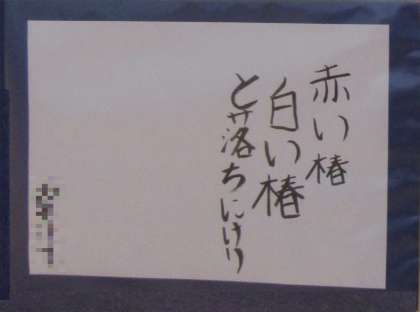 赤い椿
白い椿
と落ちにけり